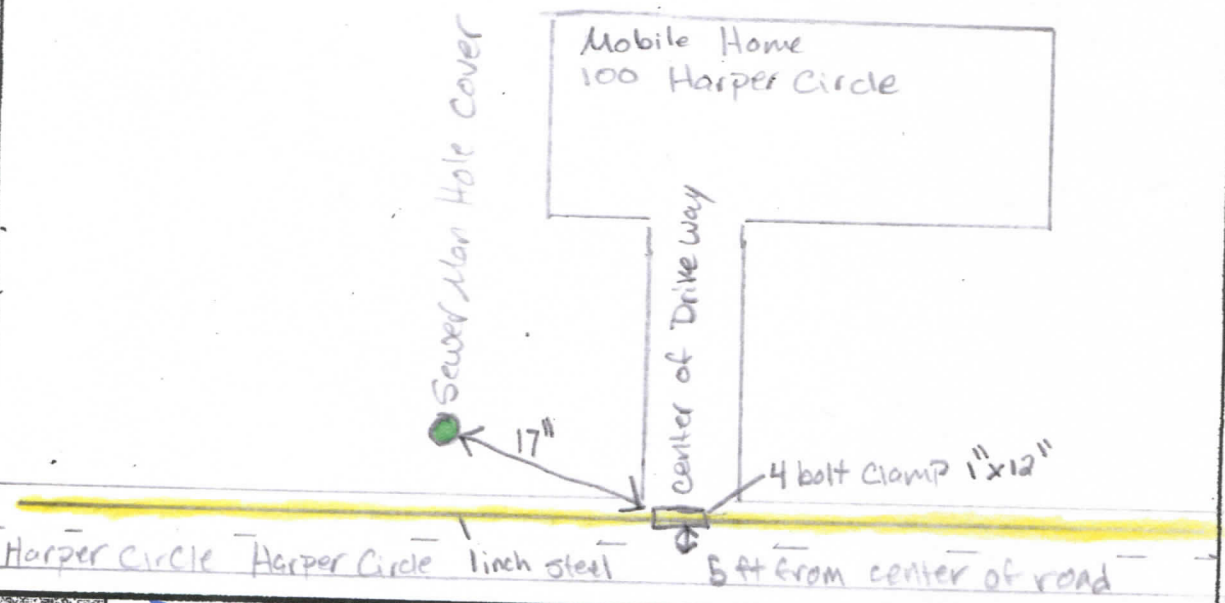 Mobile Home
100 Harper Circle
Sewer Man Hole Cover
center of Driveway
17"
4 bolt Clamp 1"x12"
Harper Circle Harper Circle 1inch steel
5 ft from center of road